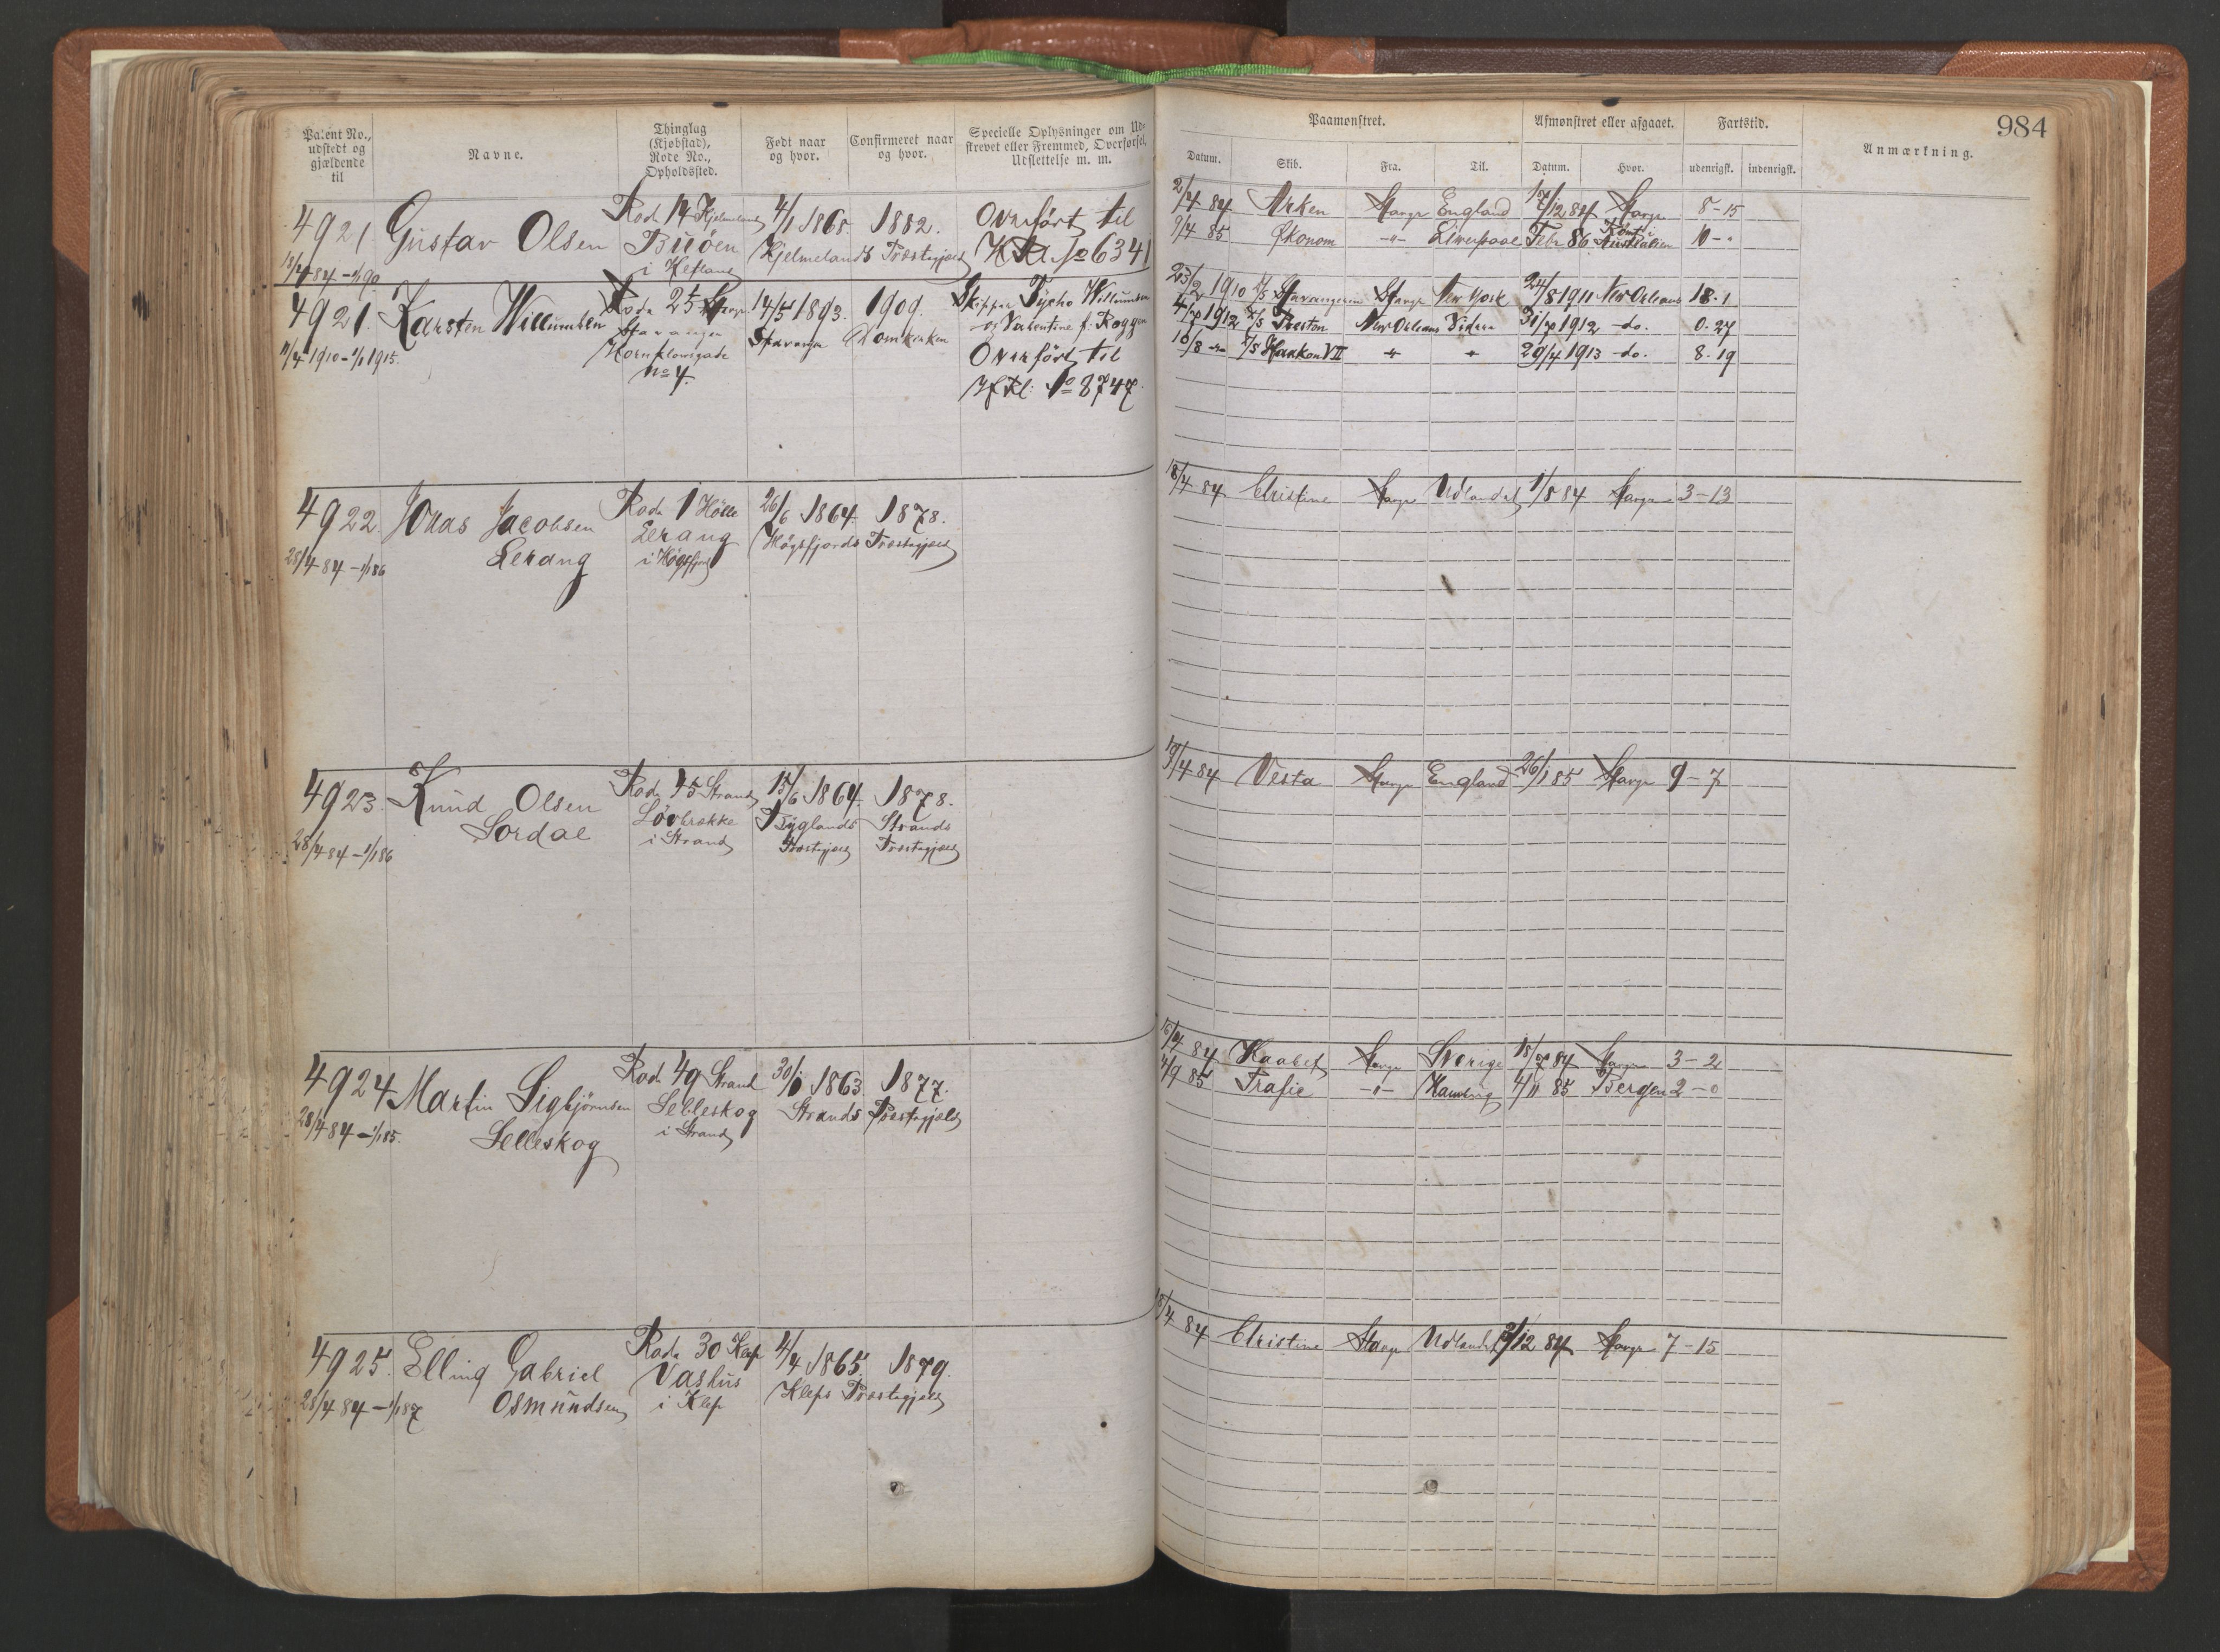 984
Patent No., udstedt og gjældende til
Navne.
Thinglag (Kjøbstad), Rode No., Opholdssted.
Født naar og hvor.
Confirmeret naar og hvor.
Specielle Oplysninger om Udskrevet eller Fremmed, Overførsel, Udslettelse m. m.
Paamønstret.
Afmønstret eller afgaaet.
Fartstid.
Anmærkning.
Datum. Skib. Fra. Til. Datum. Hvor. udenrigsk. indenrigsk.
4921 Gustav Olsen
Rode 14 Hjelmeland
Buöen
i Hefland
4/1 1865 1882.
Hjelmelands Præstegjæld
Overført til
No 6341
18/4 84 - 1/1 90
2/4 84 Arken Stavgr England 17/12 84 Stavgr 8-15
9/4 85 Økonom -"- Liverpool Febr 86 Rømt i Australien 10-"
4921. Karsten Willumsen
Rode 25 Stavgr
Stavanger
Hornklowsgade
No 4.
14/5 1893. 1909.
Stavanger Domkirken
Skipper Tycho Willumsen
og Valentine f. Roggen
Overført til
No 8747.
11/4 1910 - 1/1 1915.
23/2 1910 D/S Stavangeren Stavgr New York 24/8 1911 New Orleans 18. 1
4/7 1912 D/S Preston New Orleans Videre 31/7 1912 do. 0. 27
10/8 - D/S Haakon VII " " 29/4 1913 do. 8. 19
4922. Jonas Jacobsen
Lerang
Rode 1 Hölle
Lerang
i Høgsfjord
26/6 1864. 1878.
Høgsfjords Præstegjæld
28/4 84 - 1/1 86
18/4 84 Christine Stavgr Udlandet 1/8 84 Stavgr 3-13
4923. Knud Olsen
Sordal
Rode 45 Strand
Lövbrække
i Strand
15/6 1864. 1878.
Byglands Præstegjæld
Strands Præstegjæld
28/4 84 - 1/1 86
19/4 84 Vesta Stavgr England 26/1 85 Stavgr 9-7
4924 Martin Sigbjörnsen
Selleskog
Rode 49 Strand
Selleskog
i Strand
1863. 1877.
Strands Præstegjæld
28/4 84 - 1/1 85.
16/4 84 Haabet Stavgr Sverige 18/7 84 Stavgr 3-2
4/9 85 Trafic -"- Hamburg 4/11 85 Bergen 2-0
4925. Elling Gabriel
Osmundsen
Rode 30 Klep
Vashus
i Klep
4/4 1865. 1879.
Kleps Præstegjæld
28/4 84 - 1/1 87
18/4 84 Christine Stavgr Udlandet /12 84 Stavgr 7-15